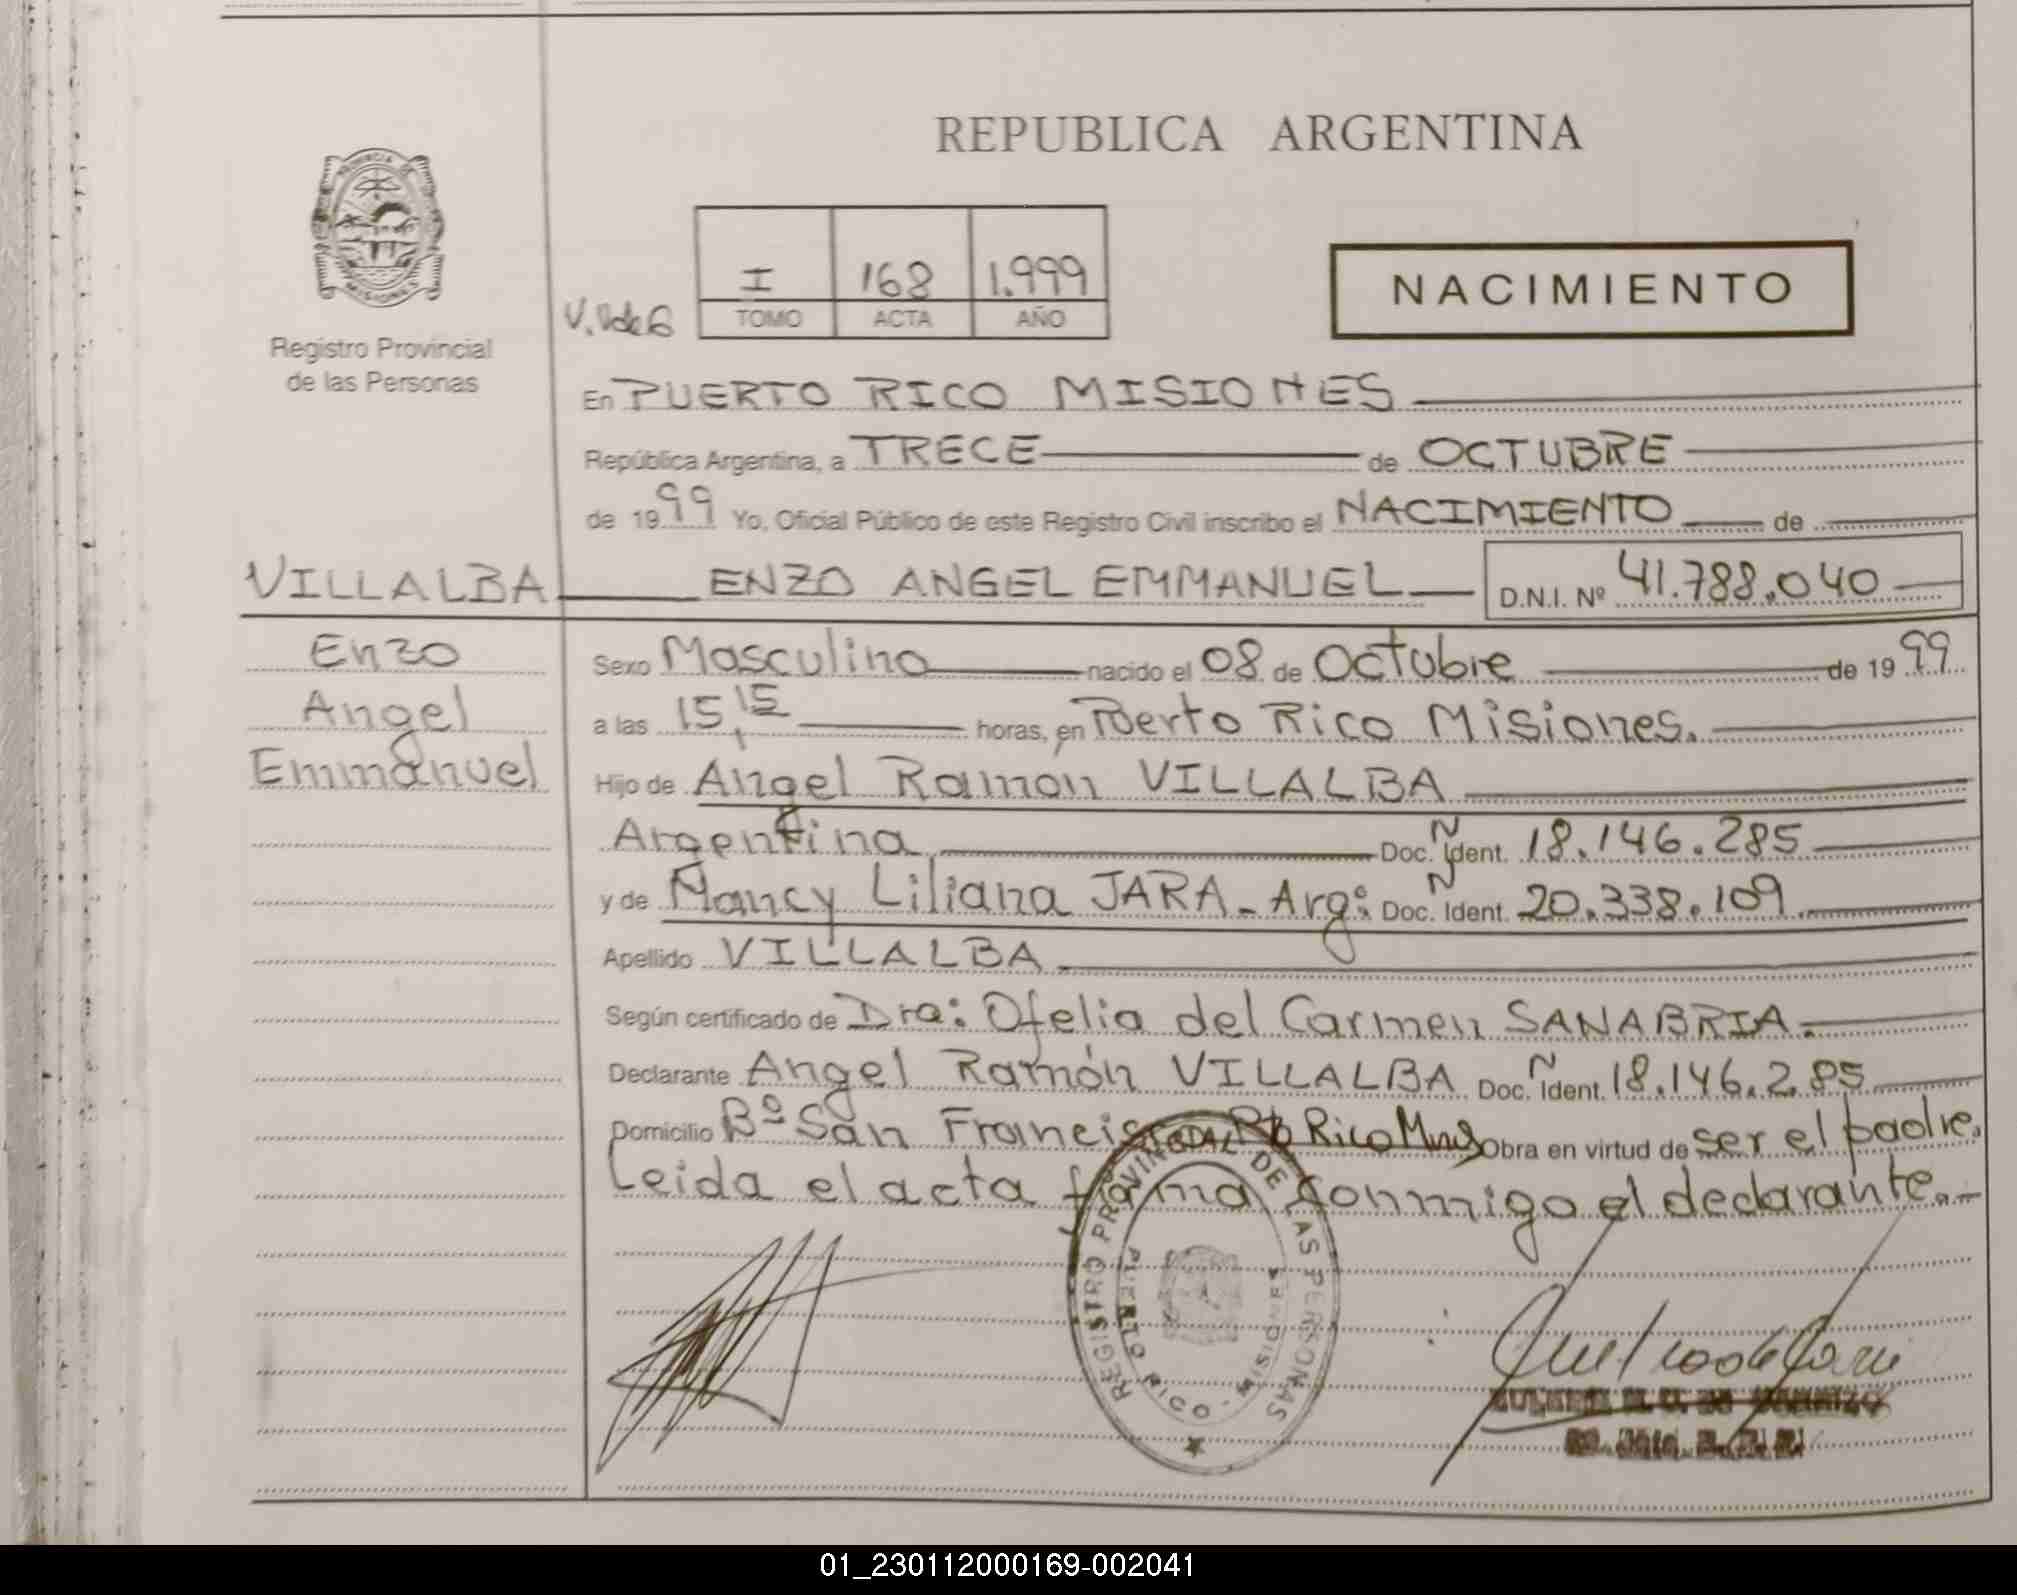 REPUBLICA ARGENTINA
PROVINCIA DE
MISIONES
Registro Provincial
de las Personas
I 168 1.999
TOMO ACTA AÑO
NACIMIENTO
En PUERTO RICO MISIONES
República Argentina, a TRECE de OCTUBRE
de 1999 Yo, Oficial Público de este Registro Civil inscribo el NACIMIENTO de
VILLALBA ENZO ANGEL EMMANUEL D.N.I. Nº 41.788.040
Enzo
Angel
Emmanuel
Sexo Masculino nacido el 08 de Octubre de 1999
a las 15,15 horas, en Puerto Rico Misiones.
Hijo de Angel Ramón VILLALBA
Argentina Doc. Ñ Ident. 18.146.285
y de Nancy Liliana JARA - Arg: Doc. Ñ Ident. 20.338.109
Apellido VILLALBA
Según certificado de Dra: Ofelia del Carmen SANABRIA.
Declarante Angel Ramón VILLALBA Doc. Ñ Ident. 18.146.285
Domicilio Bº San Francisco Pto Rico Mnes Obra en virtud de ser el padre.
Leida el acta firma conmigo el declarante.
REGISTRO PROVINCIAL DE LAS PERSONAS
PUERTO RICO - MISIONES
01_230112000169-002041